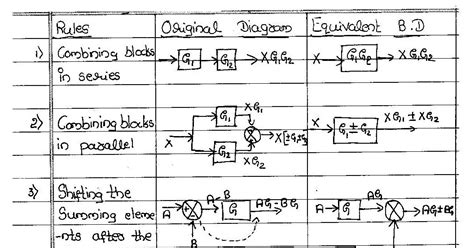 Rules Original Diagram Equivalent B.D
1) Combining blocks in series
G1 G2 XG1G2
X G1G2 XG1G2
2) Combining blocks in parallel
X G1 XG1
G2 XG2
X G1±G2 XG1±XG2
3) Shifting the
Summing eleme
-nts after the
A A-B G AG-BG
B
A G AG AG±BG